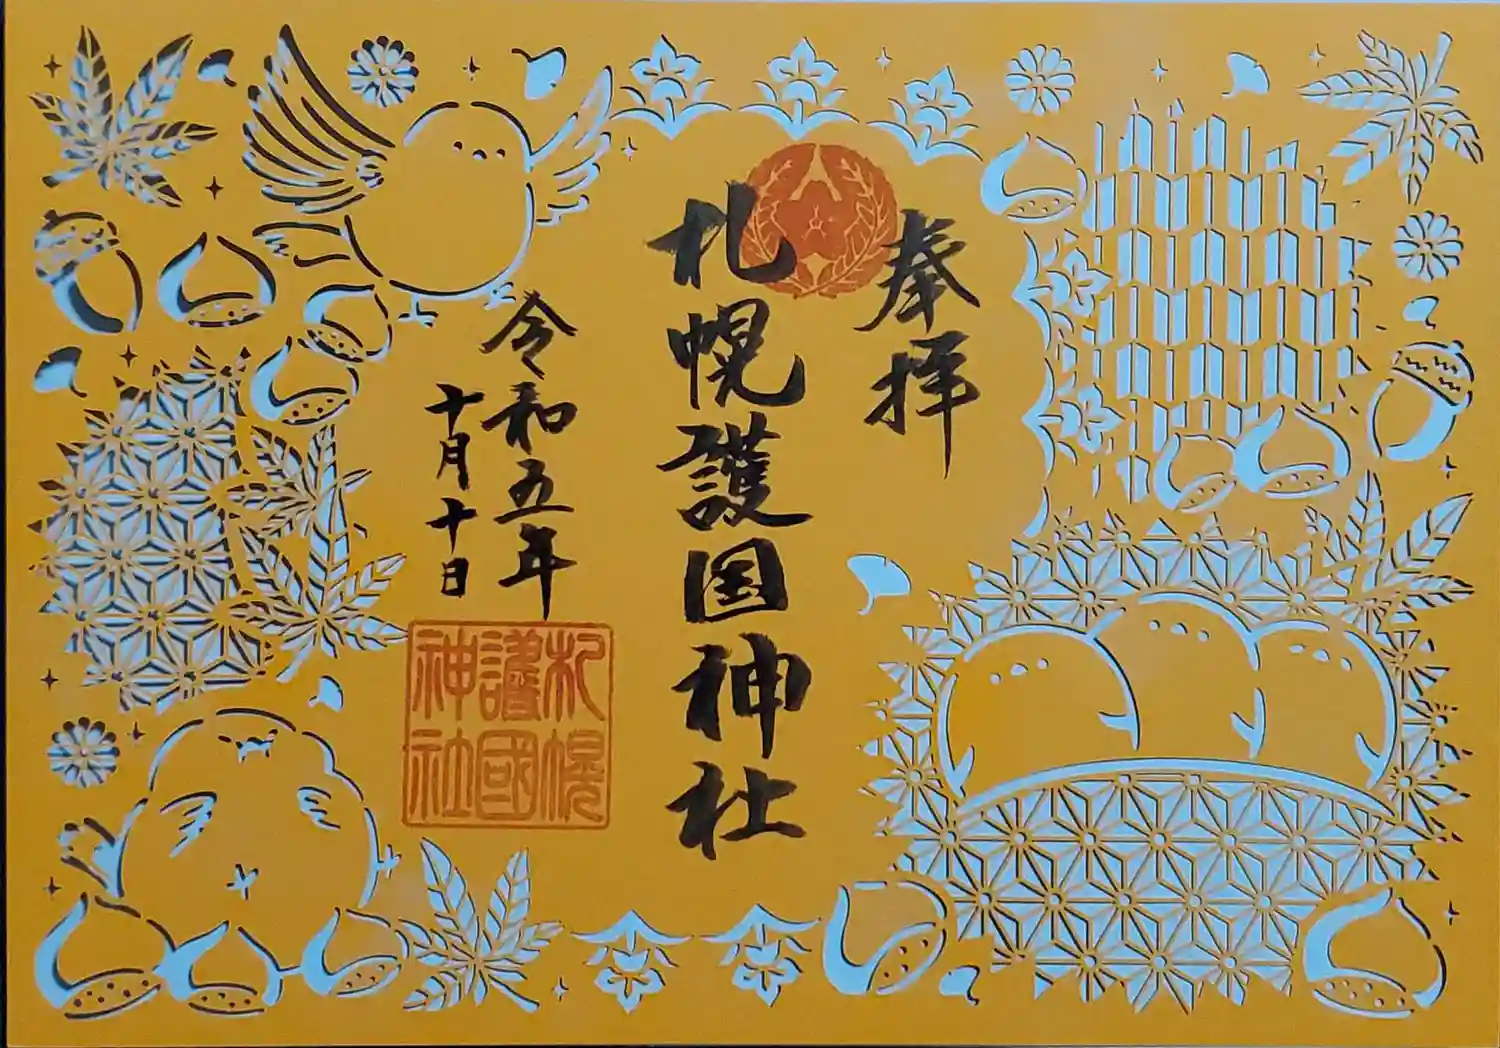 奉拝
札幌護国神社
令和五年
十月十日
札幌
護國
神社